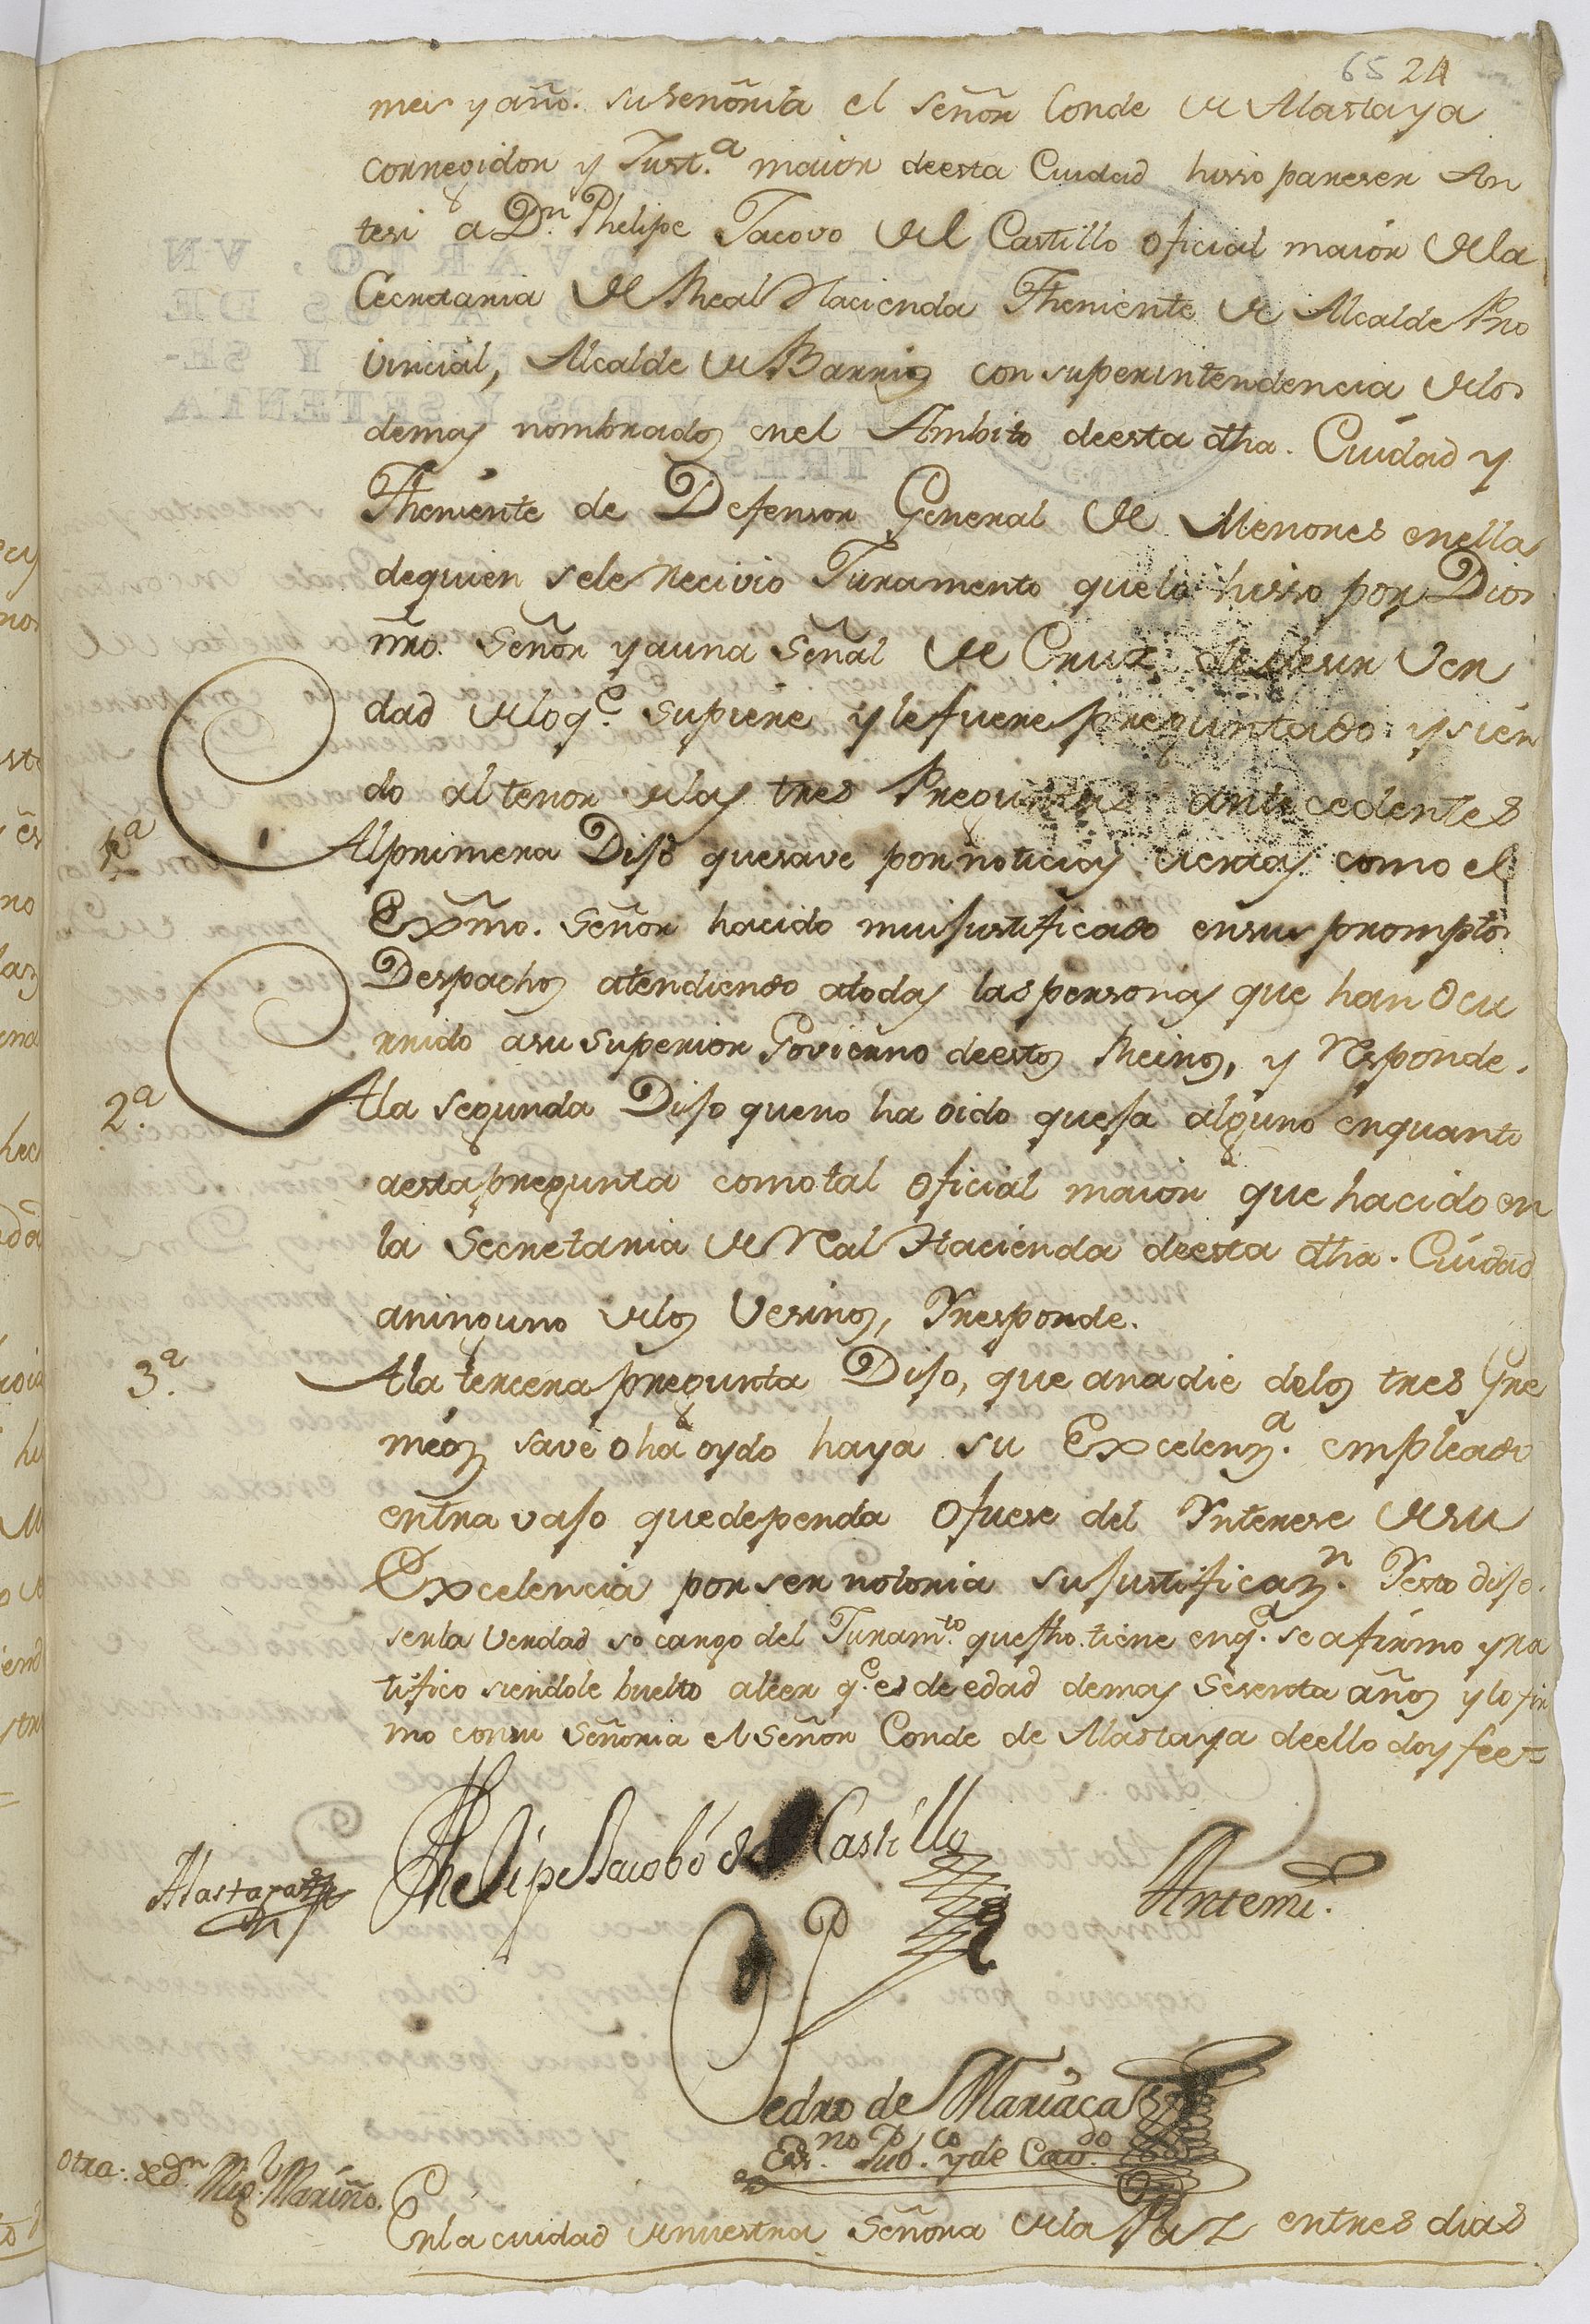 65 24
mes y año. suseñoria el señor Conde de Alastaya
Corregidor y Just.ª maior deesta Ciudad hisso pareser An
tesi a Dn. Phelipe Jacovo del Castillo oficial maior dela
Cecretaria de Rheal Hacienda Theniente de Alcalde Pro
vincial, Alcalde de Barrios con superintendencia delos
demas nombrados enel Ambito deesta dha. Ciudad y
Theniente de Defensor General de Menores enella
dequien sele recivio Juramento quelo hisso por Dios
nro. señor yauna señal de Cruz de desir Ver
dad deloq.e supiere ylefuere preguntado ysien
do altenor delas tres Preguntas antecedentes
1ª Alprimera Dijo quesave pornoticias ciertas como el
Exmo. señor hacido muijustificado ensus promptos
Despachos atendiendo atodas laspersonas que han Ocu
rrido asu superior Govierno deestos Rheinos, y Responde.
2.ª Ala segunda Dijo queno ha oido quesa alguno enquanto
aestapregunta comotal oficial maior que hacido en
la Secretaria de Real Hacienda deesta dha. Ciudad
aninguno delos Vesinos, Yresponde.
3.ª Ala tercera pregunta Dijo, que anadie delos tres Gre
meos save oha oydo haya su Excelenz.ª empleado
entra vajo quedependa Ofuese del Ynterese desu
Excelencia porser notoria sujustificaz.n Yesto dijo
serla Verdad so cargo del Juram.to quefho. tiene enq.e se afirmo yra
tifico siendole buelto aleer q.e es de edad demas Sesenta años ylo fir
mo consu Señoria el Señor Conde de Alastaya deello doy fee=
Alastaya
Phelipe Jacobo del Castillo
Antemi.
Pedro de Mariaca
Esn.no Pub.co yde Cavo.do
Otra: de dn. Mig.l Mariño.
Enla ciudad denuestra Señora dela Paz entres dias